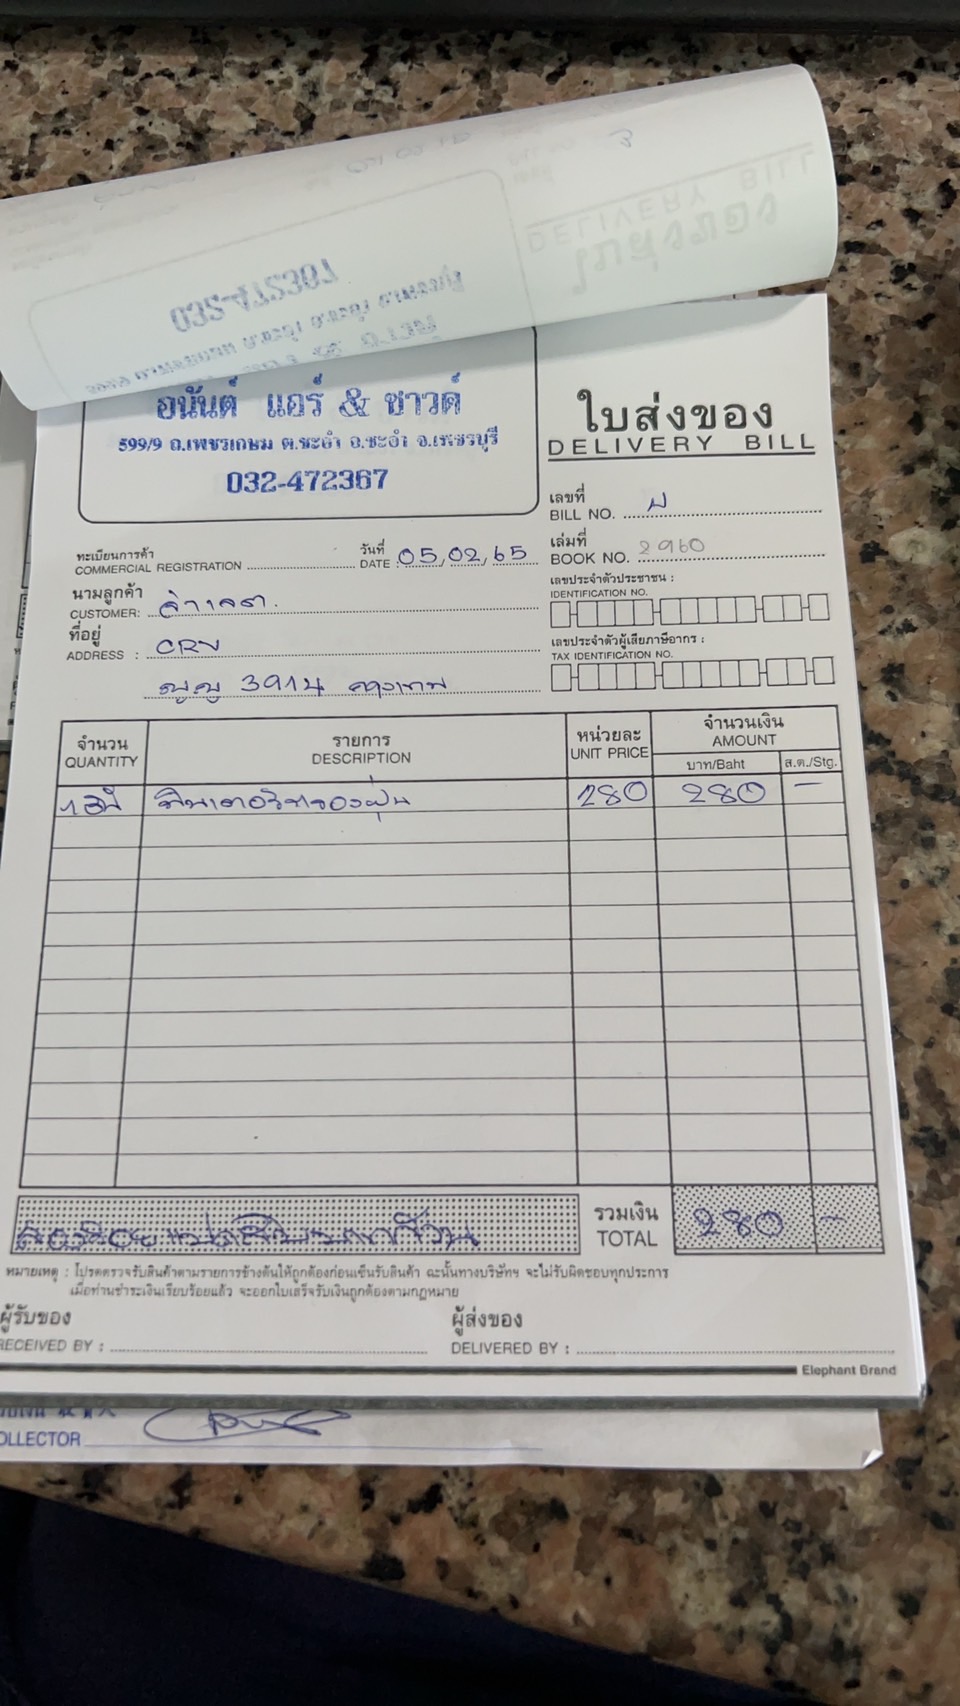 อนันต์ แอร์ & ซาวด์
599/9 ถ.เพชรเกษม ต.ชะอำ อ.ชะอำ จ.เพชรบุรี
032-472367
ใบส่งของ
DELIVERY BILL
เลขที่
BILL NO.
เล่มที่
BOOK NO. 2960
ทะเบียนการค้า
COMMERCIAL REGISTRATION
วันที่
DATE 05,02,65
เลขประจำตัวประชาชน :
IDENTIFICATION NO.
นามลูกค้า
CUSTOMER:
ที่อยู่
ADDRESS : CRV
เลขประจำตัวผู้เสียภาษีอากร :
TAX IDENTIFICATION NO.
ญญ 3914 กรุงเทพ
จำนวน
QUANTITY
รายการ
DESCRIPTION
หน่วยละ
UNIT PRICE
จำนวนเงิน
AMOUNT
บาท/Baht
ส.ต./Stg.
280 280 -
สองร้อยแปดสิบบาทถ้วน
รวมเงิน
TOTAL
280 -
หมายเหตุ : โปรดตรวจรับสินค้าตามรายการข้างต้นให้ถูกต้องก่อนเซ็นรับสินค้า ฉะนั้นทางบริษัทฯ จะไม่รับผิดชอบทุกประการ
เมื่อท่านชำระเงินเรียบร้อยแล้ว จะออกใบเสร็จรับเงินถูกต้องตามกฎหมาย
ผู้รับของ
RECEIVED BY :
ผู้ส่งของ
DELIVERED BY :
Elephant Brand
OLLECTOR